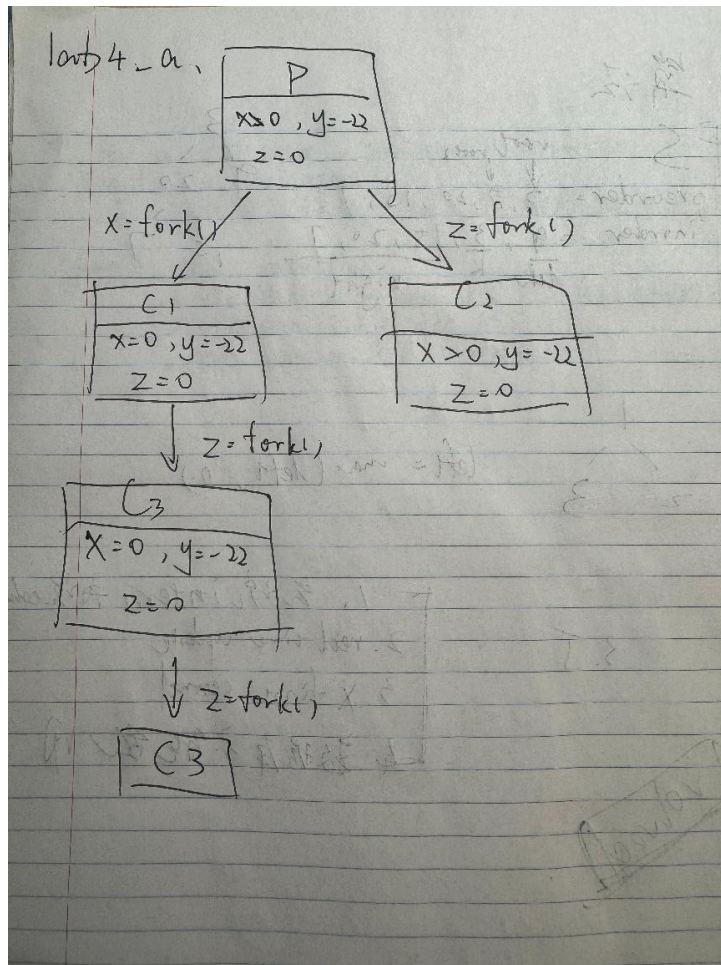 lab 4_a.
P
x>0 , y=-22
z=0
x=fork()
z=fork()
C1
x=0 , y=-22
z=0
C2
x>0 , y=-22
z=0
z=fork()
C3
x=0 , y=-22
z=0
z=fork()
C3